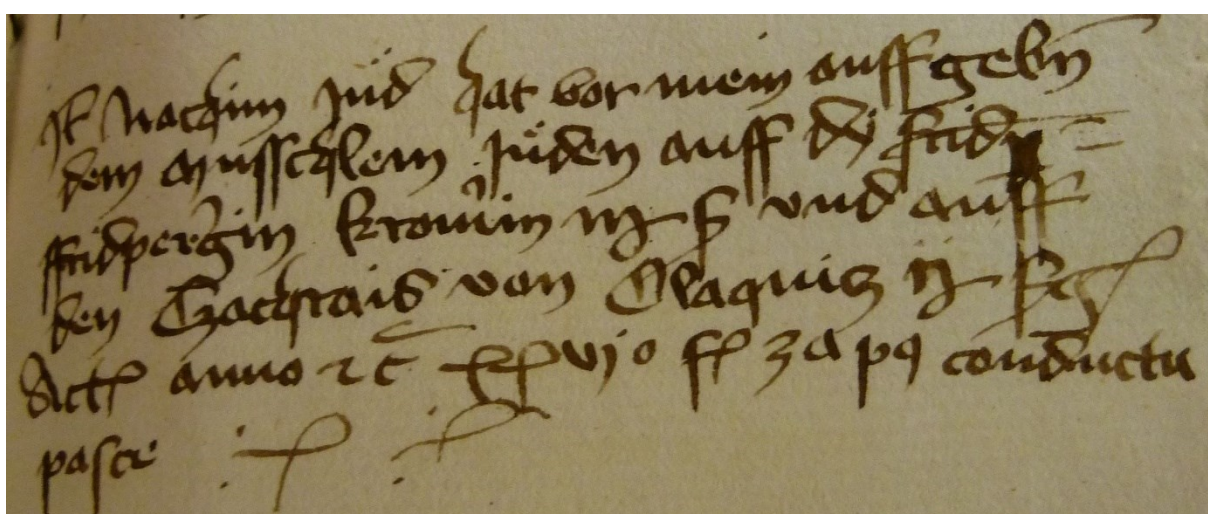 It Nachim Jüd hat vor mein auffgebn
dem Musschlem Juden auff dy
fridpergin kromerin iij ß und auff
den Zachrais von Olaquicz ij
Act anno 2c xxvjo f 3a p9 conductu
pasce